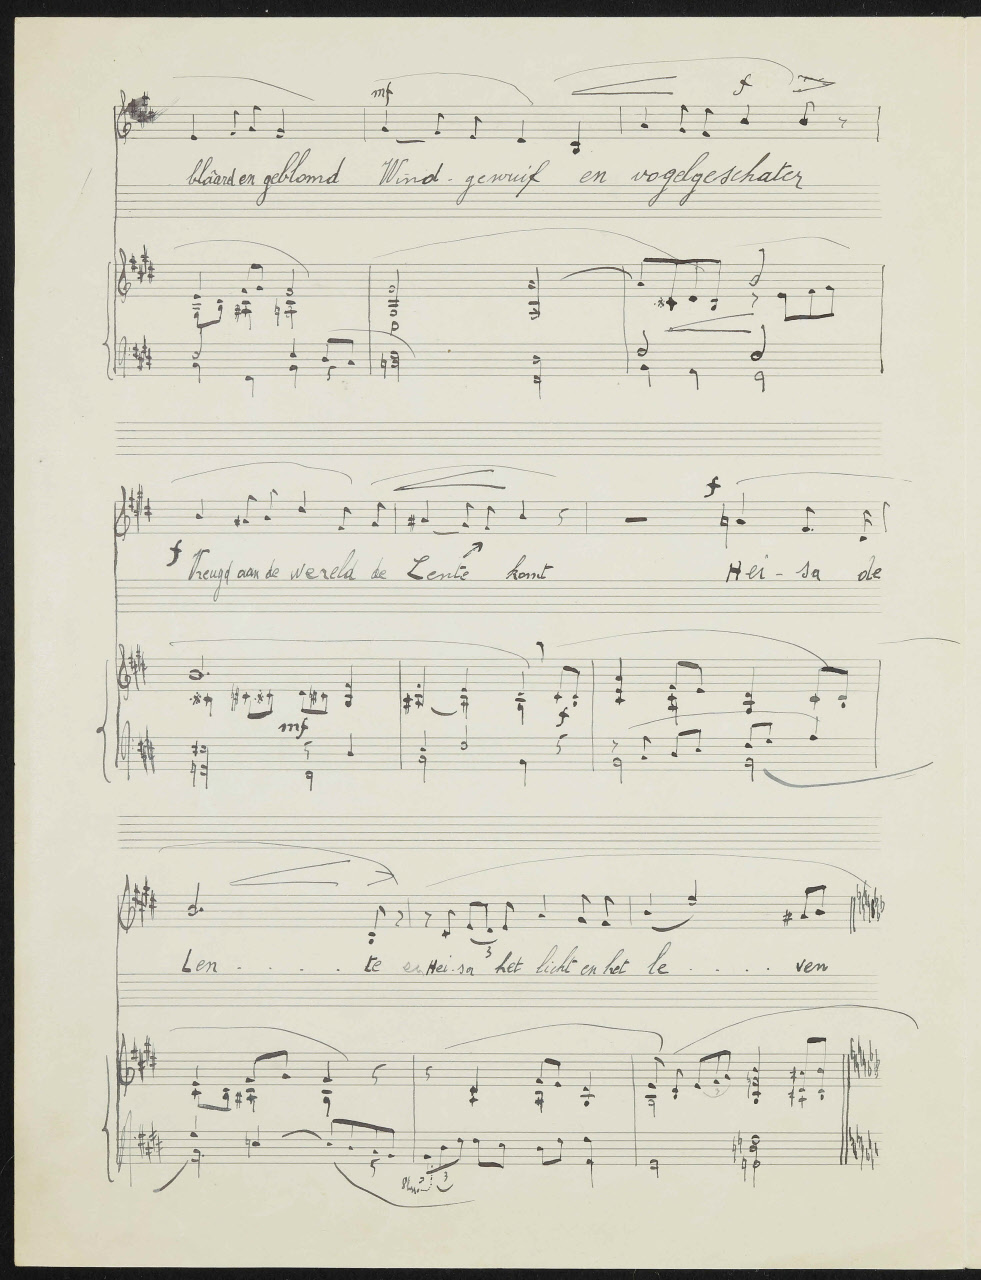 mf f
blaarden geblomd Wind - gewuif en vogelgeschater
f
f Vreugd aan de wereld de Lente komt Hei - sa de
mf f
Len . . . . . te Hei - sa het licht en het le . . . . . ven
3
3